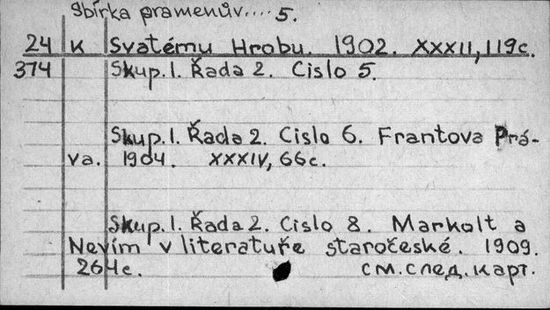 Sbírka pramenův.... 5.
24 K Svatému Hrobu. 1902. XXXII, 119c.
374 Skup. I. Řada 2. Cislo 5.
Skup. I. Řada 2. Cislo 6. Frantova Prá-
va. 1904. XXXIV, 66c.
Skup. I. Řada 2. Cislo 8. Markolt a
Nevím v literatuře staročeské. 1909.
264c. см. след. карт.